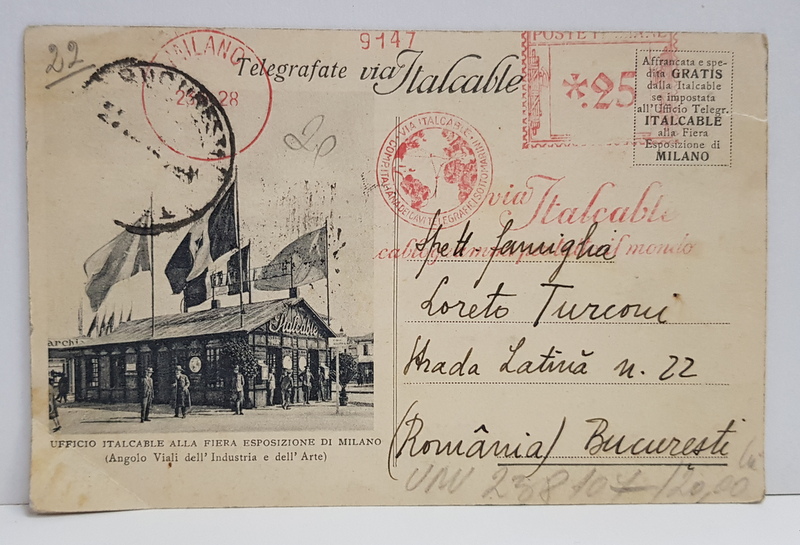 22
MILANO
28
BUCURESTI
9147
Telegrafate via Italcable
POSTE ITALIANE
*.25
Affrancata e spe-
dita GRATIS
dalla Italcable
se impostata
all'Ufficio Telegr.
ITALCABLE
alla Fiera
Esposizione di
MILANO
20
VIA ITALCABLE
via Italcable
mondo
Spett. famiglia
Loreto Turconi
Strada Latină n. 22
(România) București
Italcable
archi
UFFICIO ITALCABLE ALLA FIERA ESPOSIZIONE DI MILANO
(Angolo Viali dell'Industria e dell'Arte)
238 104 /20,00